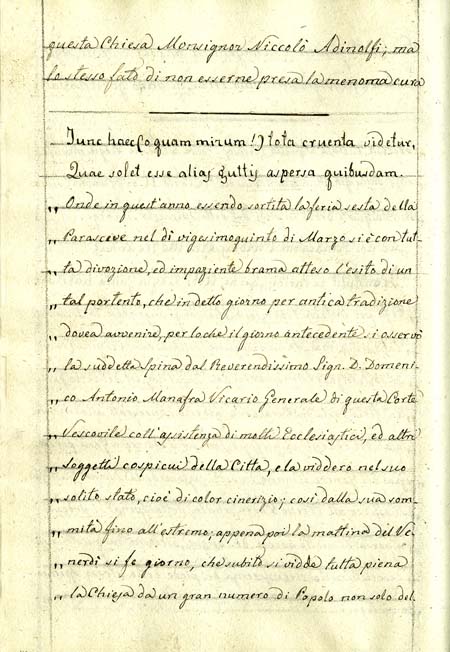 questa Chiesa Monsignor Niccolò Adinolfi; ma
lo stesso fato di non esserne presa la menoma cura
Tunc haec (o quam mirum!) tota cruenta videtur,
Quae solet esse alias guttis aspersa quibusdam.
„ Onde in quest'anno essendo sortita la feria sesta della
„ Parasceve nel dì vigesimoquinto di Marzo si è con tut-
„ ta divozione, ed impaziente brama atteso l'esito di un
„ tal portento, che in detto giorno per antica tradizione
„ dovea avvenire, per lo che il giorno antecedente si osservò
„ la suddetta Spina dal Reverendissimo Sign. D. Domeni-
„ co Antonio Manafra Vicario Generale di questa Corte
„ Vescovile coll'assistenza di molti Ecclesiastici, ed altri
„ Soggetti cospicui della Città, e la viddero nel suo
„ solito stato, cioè di color cinerizio; così dalla sua som-
„ mità fino all'estremo; appena poi la mattina del Ve-
„ nerdì si fe giorno, che subito si vidde tutta piena
„ la Chiesa da un gran numero di Popolo non solo del-